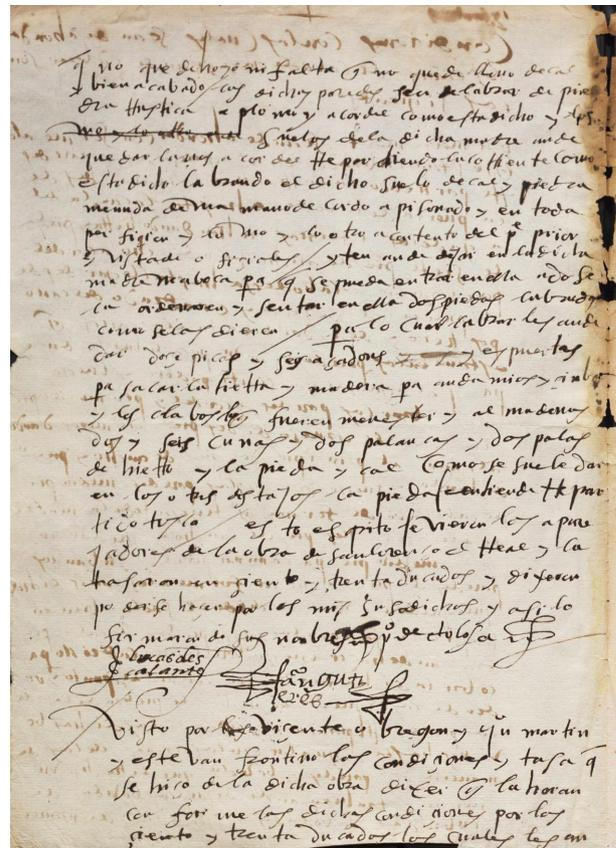 q no que de hoyo ni falta q no quede lleno de cal
bien acabado las dichas paredes sea de labrar de pie
dra Rustica a plomo y a cordel como esta dicho y
suelos de la dicha madre ande
quedar la nes a cordel Re partiendo la corriente como
esta dicho labrando el dicho suelo de cal y piedra
menuda de una mano de lardo a pisonado y en toda
per ficion y lo uno y lo otro a contento del pe prior
y vista de o ficiales / y ten ande dejar en la dicha
madre una boca pa q se pueda entrar en ella a do se
la ordenaren y sentar en ella dos piedras labradas
como se las dieren / pa lo cual labrar les ande
dar doce picos y seys açadones y espuertas
pa sacar la tierra y madera pa andamios y
y les clabos q fueren menester y al
dos y seis cunas y dos palancas y dos palas
de hierro y la piedra y cal como se suele dar
en los otros destajos la piedra se entiende Re par
tico tosco esto escrito se vieron los apare
jadores de la obra de san lorenço el Real y la
tasaron en ciento y trenta ducados y dixeron
poderse hacer por los mrs susadichos y asi lo
firmaron de sus nonbres po de tolosa
lucas des
calante
fran guti
erres
Visto por Vicente obregon y Ju martin
y estevan frontino las condiciones y tasa q
se hiço de la dicha obra dixeron q la haran
con forme las dichas condiciones por los
ciento y trenta ducados los cuales les an